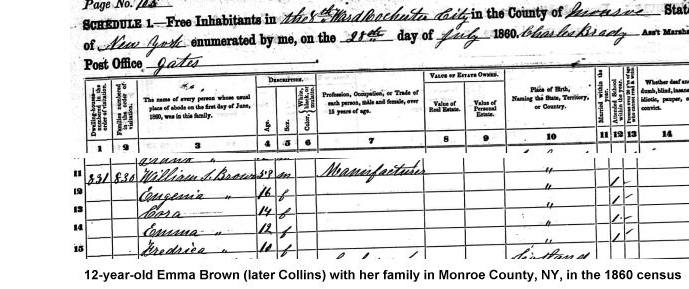 Page No. 
SCHEDULE 1.—Free Inhabitants in the 8th Ward Rochester City in the County of Monroe State
of New York enumerated by me, on the 28th day of July 1860. Charles Brady Ass't Marshal
Post Office Gates
Dwelling-houses numbered in the order of visitation.
Families numbered in the order of visitation.
The name of every person whose usual place of abode on the first day of June, 1860, was in this family.
DESCRIPTION.
Age.
Sex.
Color,
Profession, Occupation, or Trade of each person, male and female, over 15 years of age.
VALUE OF ESTATE OWNED.
Value of Real Estate.
Value of Personal Estate.
Place of Birth, Naming the State, Territory, or Country.
Married within the year.
Attended School within the year.
Whether deaf and dumb, blind, insane, idiotic, pauper, or convict.
1 2 3 4 5 6 7 8 9 10 11 12 13 14
11 831 830 William S. Brown 59 m Manufacturer "
12 Eugenia " 16 f " 1
13 Cora " 14 f " 1
14 Emma " 12 f " 1
15 Fredrica " 10 f " 1
12-year-old Emma Brown (later Collins) with her family in Monroe County, NY, in the 1860 census